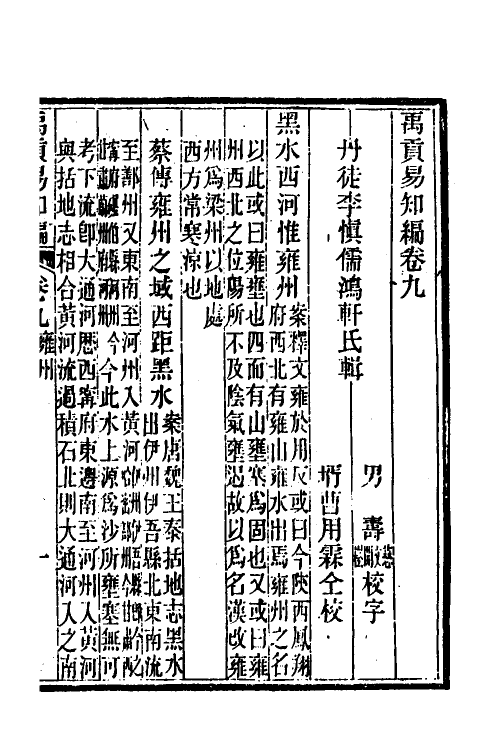 禹貢易知編卷九
丹徒李慎儒鴻軒氏輯
男 壽 校字
壻曹用霖仝校
黑水西河惟雍州
案釋文雍於用反或曰今陝西鳳翔
府西北有雍山雍水出焉雍州之名
以此或曰雍壅也四面有山壅塞爲固也又或曰雍
州西北之位陽所不及陰氣壅遏故以爲名漢改雍
州爲梁州以地處
西方常寒涼也
蔡傳雍州之域西距黑水
案唐魏王泰括地志黑水
出伊州伊吾縣北東南流
至鄯州又東南至河州入黃河
今 今此水上源爲沙所壅塞無可
考下流卽大通河歷西甯府東邊南至河州入黃河
與括地志相合黃河流過積石北則大通河入之南
禹貢易知編 卷九雍州
一